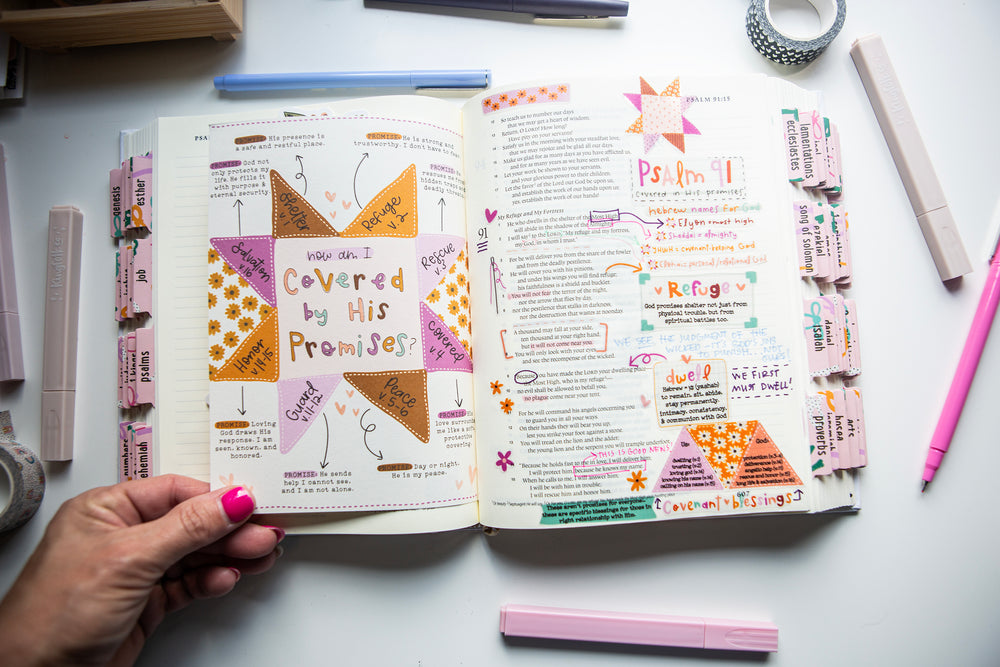 PSA
PROMISE: His presence is
a safe and restful place.
PROMISE: He is strong and
trustworthy. I don't have to fear
PROMISE: God not
only protects my
life. He fills it
with purpose &
eternal security.
PROMISE: He
rescues me from
hidden traps and
deadly
Shelter
v.1
Refuge
v.2
Salvation
v.16
Rescue
v.3
how am I
Covered
by His
Promises?
Honor
v.14-15
Covered
v.4
Guard
v.11-12
Peace
v.5-6
PROMISE: Loving
God draws His
response. I am
seen, known, and
honored.
PROMISE: His
love surrounds
me like a soft
protective
covering.
PROMISE: He sends
help I cannot see,
and I am not alone.
PROMISE: Day or night,
He is my peace.
genesis
esther
job
psalms
numbers
nehemiah
PSALM 91:15
12 So teach us to number our days
that we may get a heart of wisdom.
13 Return, O LORD! How long?
Have pity on your servants!
14 Satisfy us in the morning with your steadfast love,
that we may rejoice and be glad all our days.
15 Make us glad for as many days as you have afflicted us,
and for as many years as we have seen evil.
16 Let your work be shown to your servants,
and your glorious power to their children.
17 Let the favor of the Lord our God be upon us,
and establish the work of our hands upon us;
yes, establish the work of our hands!
My Refuge and My Fortress
91
He who dwells in the shelter of the Most High
will abide in the shadow of the Almighty.
2 I will say to the LORD, "My refuge and my fortress,
my God, in whom I trust."
3 For he will deliver you from the snare of the fowler
and from the deadly pestilence.
4 He will cover you with his pinions,
and under his wings you will find refuge;
his faithfulness is a shield and buckler.
5 You will not fear the terror of the night,
nor the arrow that flies by day,
6 nor the pestilence that stalks in darkness,
nor the destruction that wastes at noonday.
7 A thousand may fall at your side,
ten thousand at your right hand,
but it will not come near you.
8 You will only look with your eyes
and see the recompense of the wicked.
9 Because you have made the LORD your dwelling place
the Most High, who is my refuge
10 no evil shall be allowed to befall you,
no plague come near your tent.
11 For he will command his angels concerning you
to guard you in all your ways.
12 On their hands they will bear you up,
lest you strike your foot against a stone.
13 You will tread on the lion and the adder;
the young lion and the serpent you will trample underfoot.
THIS IS GOOD NEWS
14 "Because he holds fast to me in love, I will deliver him;
I will protect him, because he knows my name.
15 When he calls to me, I will answer him;
I will be with him in trouble;
I will rescue him and honor him.
These aren't promises for everyone,
these are specific blessings for those in
right relationship with Him.
Psalm 91
covered in His promises
hebrew names for God
Elyon: most high
Shaddai: almighty
YHWH: covenant-keeping God
Elohim: personal/relational God
Refuge
God promises shelter not just from
physical trouble, but from
spiritual battles too.
WE SEE THE JUDGMENT OF THE
WICKED. IT'S GOD'S JOB
TO PUNISH. NOT
OURS!
dwell
Hebrew = (yashab)
to remain, sit, abide,
stay permanently.
intimacy, consistency,
& communion with God
WE FIRST
MUST DWELL!
dwelling (v.1)
trusting (v.2)
loving (v.14)
knowing his name (v.14)
calling on his name (v.15)
God:
protection (v.3-4)
deliverance (v.14)
angelic help (v.11)
rescue and honor (v.15)
long life & salvation (v.16)
607
Covenant + blessings
ecclesiastes
lamentations
song of solomon
ezekial
isaiah
daniel
proverbs
hosea